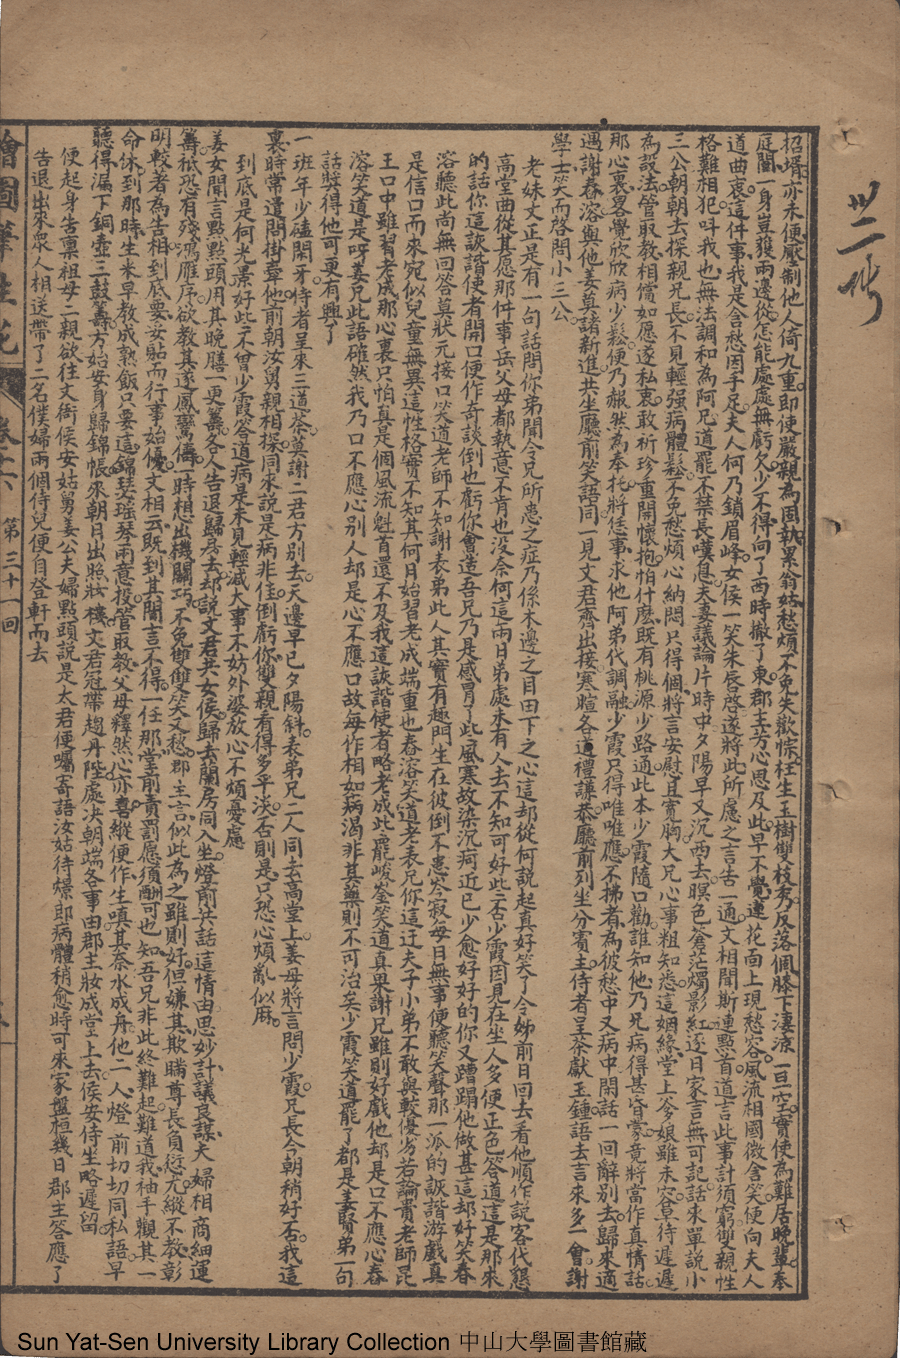 卅二号
招壻亦未便壓制他人倚九重即便嚴親為固執累翁姑愁煩不免失歡悰枉生玉樹雙枝秀反落佩膝下淒涼一旦空實使為難居晚輩奉
庭闈一身豈獲兩邊從怎能處處無虧欠少不得向了西時撇了東郡主芳心思及此早不覺蓮花面上現愁容風流相國微含笑便向夫人
道曲衷這件事我是含愁因手足夫人何乃鎖眉峰女侯一笑朱唇啓遂將此所慮之言告一通文相聞斯連點首道言此事計須窮雙親性
格難相犯叫我也無法調和為阿兄道罷不禁長嘆息夫妻議論片時中夕陽早又沉西去暝色蒼茫燭影紅逐日家言無可記話來單說小
三公朝朝去探親兄長不見輕強病體鬆不免愁煩心納悶只得個將言安慰且寬胸大兄心事粗知悉這姻緣堂上爹娘雖未容算待遲遲
為設法管取教相償如愿遂私衷敢祈珍重開懷抱怕什麽既有桃源少路通此本少霞隨口勸誰知他乃兄病得甚昏蒙竟將當作真情話
那心裏畧覺欣欣病少鬆便乃赧然為奉托將恁事求他阿弟代調融少霞只得唯唯應不拂者為彼愁中又病中閒話一回辭別去歸來適
遇謝春溶與他姜莫諸新進共坐廳前笑語同一見文君齊出接寒暄各道禮謙恭廳前列坐分賓主侍者呈茶獻玉鍾語去言來多一會謝
學士笑而啓問小三公
老妹丈正是有一句話問你弟聞令兄所患之症乃係木邊之目田下之心這却從何説起真好笑了令姊前日回去看他順作説客代懇
高堂曲從其愿那件事岳父母都執意不肯也沒奈何這兩日弟處未有人去不知可好些否少霞因見在坐人多便正色答道這是那來
的話你這詼諧使者開口便作奇談倒也虧你會造吾兄乃是感冒了些風寒故染沉疴近已少愈好好的你又蹧蹋他做甚這却好笑春
溶聽此尚無回答莫狀元接口笑道老師不知謝表弟此人其實有趣門生在彼倒不患岑寂每日無事便聽笑聲那一派的詼諧游戲真
是信口而來宛似兒童無異這性格實不知其何月始習老成端重也春溶笑道老表兄你這迂夫子小弟不敢與較優劣若論貴老師昆
王口中雖習老成那心裏只怕真是個風流魁首還不及我這詼諧使者略老成些罷峻荃笑道真果謝兄雖則好戲他却是口不應心春
溶笑道是呀姜兄此語確然我乃口不應心別人却是心不應口故每作相如病渴非其藥則不可治矣少霞笑道罷了都是姜賢弟一句
話獎得他可更有興了
一班年少磕閑牙侍者呈來三道茶莫謝二君方別去天邊早已夕陽斜表弟兄二人同去高堂上姜母將言問少霞兄長今朝稍好否我這
裏時常遣問掛牽他前朝汝舅親相探回來説是病非佳倒虧你雙親看得多平淡否則是只恐心煩亂似麻
到底是何光景好些不曾少霞答道病是未見輕減大事不妨外婆放心不煩憂慮
姜女聞言點點頭用其晚膳一更籌各人告退歸房去却説文君共女侯歸去蘭房同入坐燈前共話這情由思妙計議良謀夫婦相商細運
籌祇恐有殘鴻雁序欲教其遂鳳鸞儔一時想出機關巧不免雙雙笑又愁郡主言似此為之雖則好但嫌其欺瞞尊長負愆尤縱不教彰
明較著為舌相到底要妥貼而行事始優文相云既到其間言不得一任那堂前責罰愿須酬可也知吾兄非此終難起難道我袖手觀其一
命休到那時生米早教成熟飯只要這錦瑟瑶琴兩意投管取教父母釋然心亦喜縱便作生嗔其奈水成舟他二人燈前切切同私語早
聽得漏下銅壺三鼓籌方始安身歸錦帳來朝日出照妝樓文君冠帶趨丹陛處決朝端各事由郡主妝成堂上去侯安侍坐略遲留
便起身告禀祖母二親欲往文衙侯安姑舅姜公夫婦點頭説是太君便囑寄語汝姑待燝郎病體稍愈時可來家盤桓幾日郡主答應了
告退出來眾人相送帶了二名僕婦兩個侍兒便自登軒而去
繪圖筆生花 卷十六 第三十一回
Sun Yat-Sen University Library Collection 中山大學圖書館藏